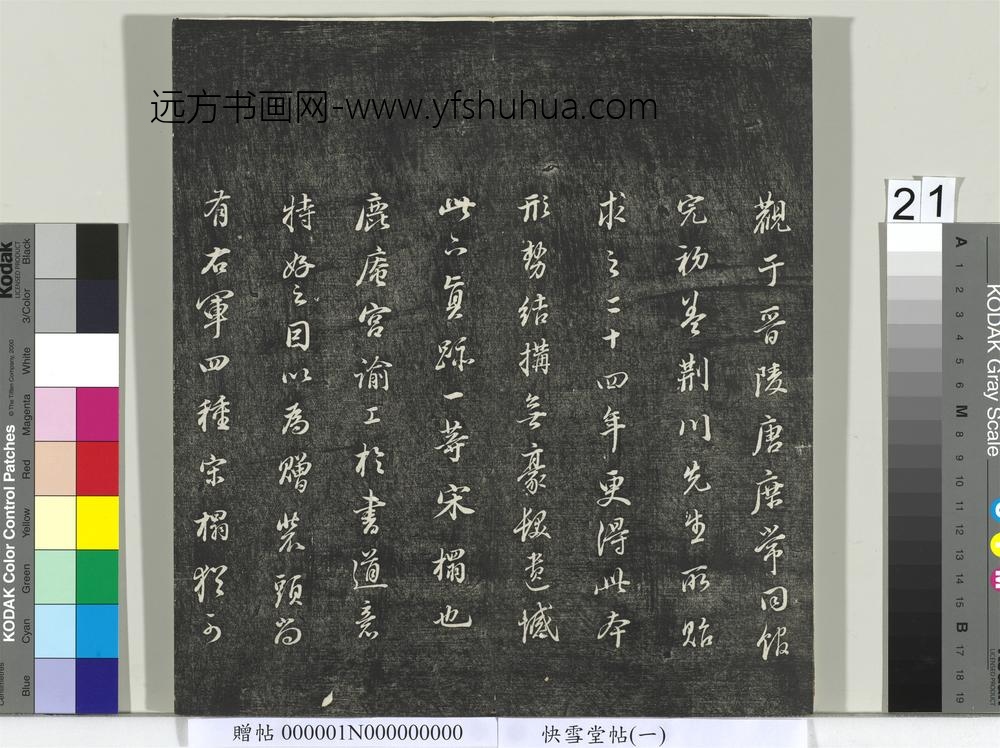 远方书画网-www.yfshuhua.com
觀于晉陵唐庶常同館
完初益荆川先生所貽
求之二十四年更得此本
形勢結搆無豪髮遺憾
此下真跡一等宋榻也
鹿菴宫諭工於書道意
特好之因以為贈裝頭尚
有右軍四種宋榻猶可
21
Kodak
LICENSED PRODUCT
Black
3/Color
White
Magenta
Red
Yellow
Green
Cyan
Blue
KODAK Color Control Patches
© The Tiffen Company, 2000
Centimetres
KODAK Gray Scale
A 1 2 3 4 5 6 M 8 9 10 11 12 13 14 15 B 17 18 19
贈帖 000001N000000000
快雪堂帖(一)